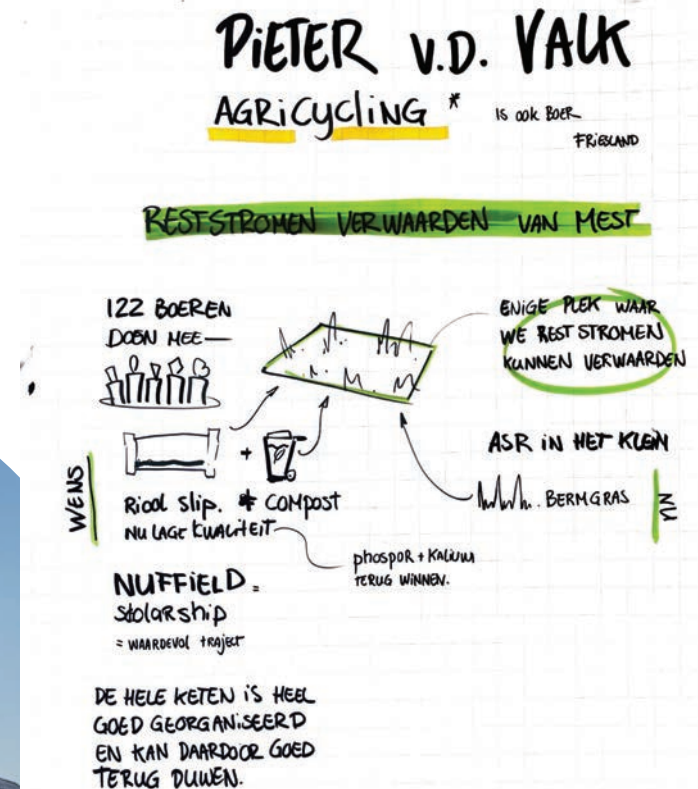 PiETER V.D. VALK
AGRiCycliNG * is ook BOER
FRiESLAND
RESTSTROMEN VERWAARDEN VAN MEST
122 BOEREN
DOEN MEE
ENiGE PLEK WAAR
WE REST STROMEN
KUNNEN VERWAARDEN
ASR iN HET KLEiN
WENS
+
Riool slip. * COMPOST
NU LAGE KWALiTEiT
BERMGRAS
NU
phospor + KALiUM
TERUG WiNNEN.
NUFFiELD =
Stolarship
= WAARDEVOl tRAjEcT
DE HELE KETEN iS HEEL
GOED GEORGANiSEERD
EN KAN DAARDOOR GOED
TERUG DUWEN.